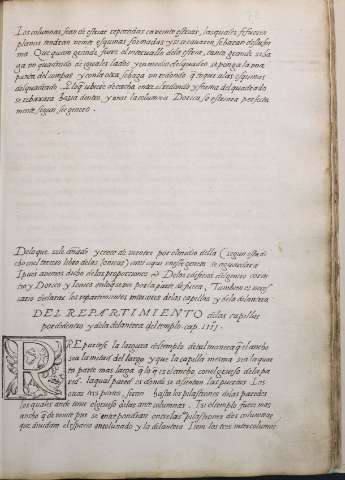 Las columnas sean de estriar repartidas en veinte estrias, las quales si fueren
planas tendran veinte esquinas formadas y si se cavaren, se haran desta for
ma. Que quan grande fuere el intervallo dela estria, tanto grande se ha
ga un quadrado de iguales lados y en medio del quadro se ponga la una
punta del compas y con la otra, se haga un redondo q̃ toque alas esquinas
del quadrado. Y lo q̃ ubiere de corba entre el redondo y forma del quadrado
se rebaxara hasta dentro, y ansi la columna Dorica, se estriara perfecta
mente, segun, su genero.
De lo que se le añade y crece de vientre por el medio della (segun esta di
cho en el tercero libro delas Ionicas)
Y pues avemos dicho delas proporciones de Delas Corin
tio y Dorico y Ionico por la parte defuera, Tambien es neces
sario declarar los repartimientos interiores delas capillas y dela delantera
DEL REPARTIMIENTO de las capillas
por dedentro y dela delantera del templo. cap. IIII.
REpartese la largura del templo de tal manera q̃ el ancho
sea la mitad del largo y que la capilla mesma sea la quar
ta parte mas larga q̃ lo q̃ es el ancho con el gruesso de la pa
red. la qual pared es donde se assientan las puertas. Las
otras tres partes, seran hasta los pilastrones delas paredes
los quales an de tener el gruesso delas ante columnas. Y si el templo fuere mas
ancho q̃ de veinte pies se entrepondran entre las pilastrones dos columnas,
que dividan el espacio antecolunado y la delantera. Y con los tres intercolunios